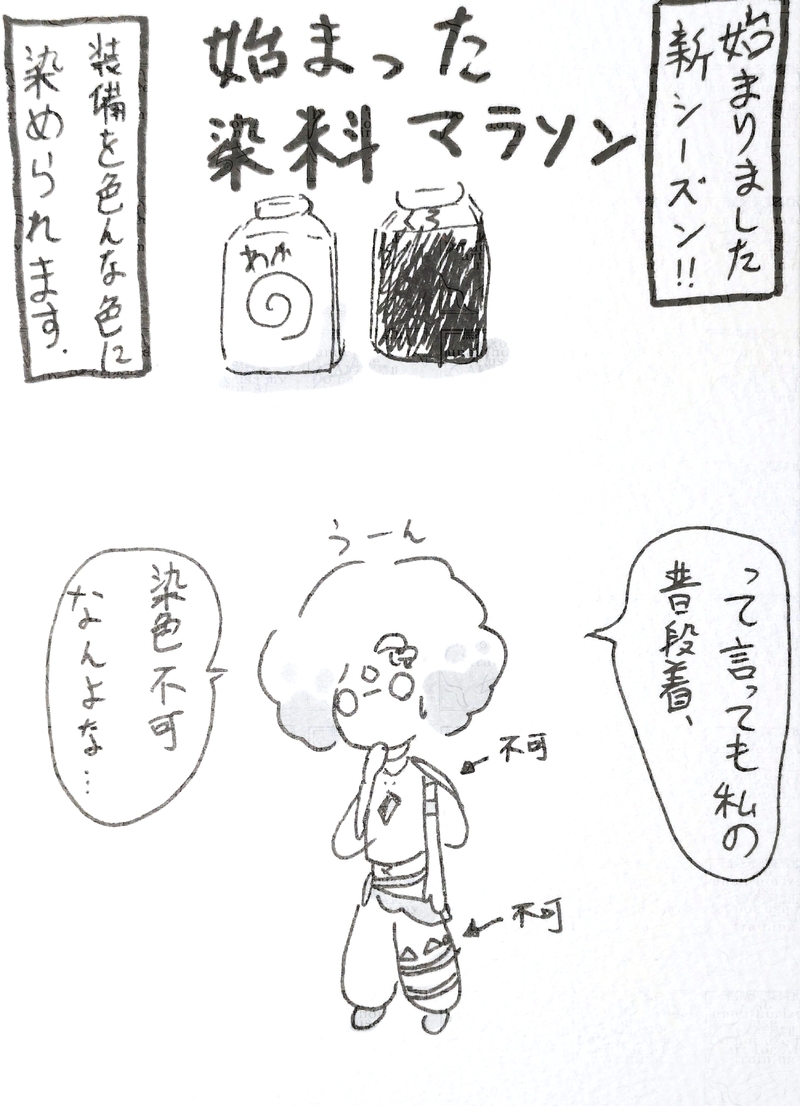 始まりました
新シーズン!!
始まった
染料マラソン
装備を色んな色に
染められます.
って言っても私の
普段着、
うーん
不可
不可
染色不可
なんよな…